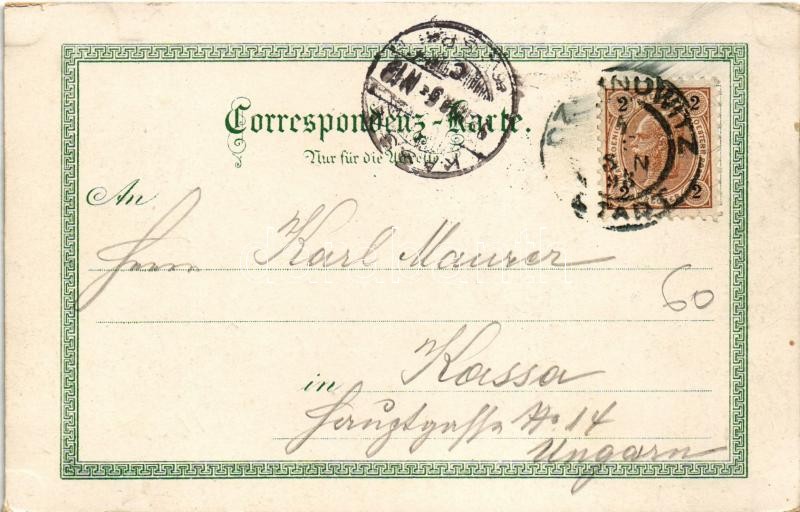 Correspondenz-Karte.
Nur für die Adresse.
An
Herrn Karl Maurer
in Kassa
Hauptgasse No 14
Ungarn
60
KASSA
2 2
2 2